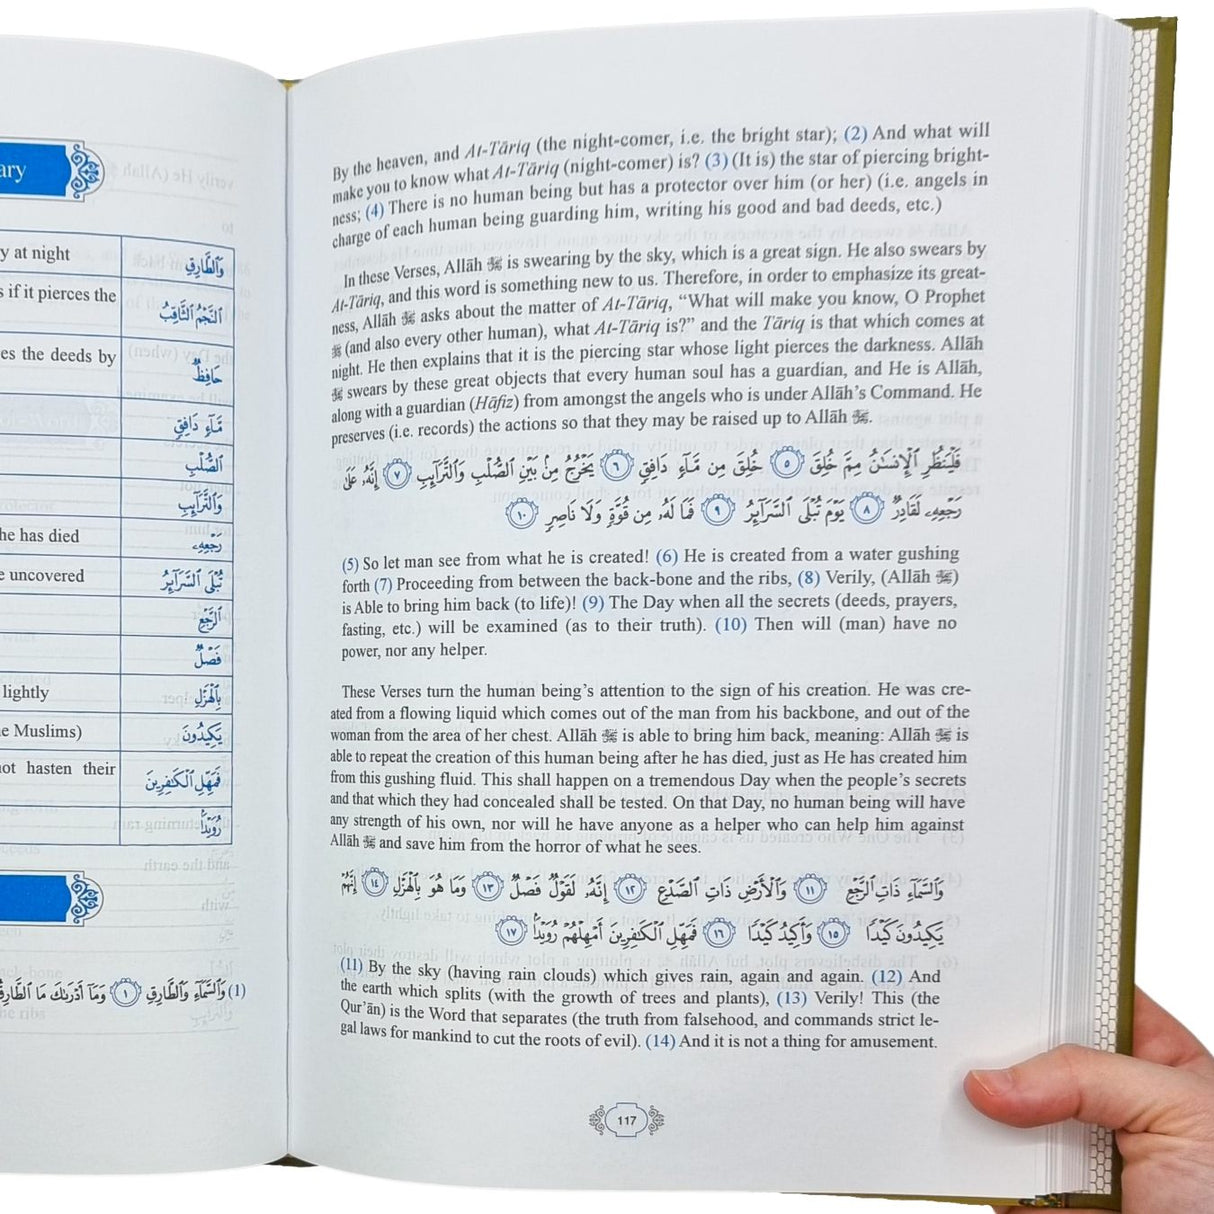 ary
y at night
وَٱلطَّارِقِ
s if it pierces the
ٱلنَّجۡمُ ٱلثَّاقِبُ
es the deeds by
حَافِظٌ
مَّآءٖ دَافِقٖ
ٱلصُّلۡبِ
وَٱلتَّرَآئِبِ
he has died
رَجۡعِهِۦ
e uncovered
تُبۡلَى ٱلسَّرَآئِرُ
ٱلرَّجۡعِ
فَصۡلٌ
lightly
بِٱلۡهَزۡلِ
e Muslims)
يَكِيدُونَ
not hasten their
فَمَهِّلِ ٱلۡكَٰفِرِينَ
رُوَيۡدَۢا
(1) وَٱلسَّمَآءِ وَٱلطَّارِقِ ١ وَمَآ أَدۡرَىٰكَ مَا ٱلطَّارِقُ
By the heaven, and At-Tāriq (the night-comer, i.e. the bright star); (2) And what will
make you to know what At-Tāriq (night-comer) is? (3) (It is) the star of piercing bright-
ness; (4) There is no human being but has a protector over him (or her) (i.e. angels in
charge of each human being guarding him, writing his good and bad deeds, etc.)
In these Verses, Allāh ﷻ is swearing by the sky, which is a great sign. He also swears by
At-Tāriq, and this word is something new to us. Therefore, in order to emphasize its great-
ness, Allāh ﷻ asks about the matter of At-Tāriq, “What will make you know, O Prophet
ﷺ (and also every other human), what At-Tāriq is?” and the Tāriq is that which comes at
night. He then explains that it is the piercing star whose light pierces the darkness. Allāh
ﷻ swears by these great objects that every human soul has a guardian, and He is Allāh,
along with a guardian (Hāfiz) from amongst the angels who is under Allāh’s Command. He
preserves (i.e. records) the actions so that they may be raised up to Allāh ﷻ.
فَلۡيَنظُرِ ٱلۡإِنسَٰنُ مِمَّ خُلِقَ ٥ خُلِقَ مِن مَّآءٖ دَافِقٖ ٦ يَخۡرُجُ مِنۢ بَيۡنِ ٱلصُّلۡبِ وَٱلتَّرَآئِبِ ٧ إِنَّهُۥ عَلَىٰ
رَجۡعِهِۦ لَقَادِرٞ ٨ يَوۡمَ تُبۡلَى ٱلسَّرَآئِرُ ٩ فَمَا لَهُۥ مِن قُوَّةٖ وَلَا نَاصِرٖ ١٠
(5) So let man see from what he is created! (6) He is created from a water gushing
forth (7) Proceeding from between the back-bone and the ribs, (8) Verily, (Allāh ﷻ)
is Able to bring him back (to life)! (9) The Day when all the secrets (deeds, prayers,
fasting, etc.) will be examined (as to their truth). (10) Then will (man) have no
power, nor any helper.
These Verses turn the human being’s attention to the sign of his creation. He was cre-
ated from a flowing liquid which comes out of the man from his backbone, and out of the
woman from the area of her chest. Allāh ﷻ is able to bring him back, meaning: Allāh ﷻ is
able to repeat the creation of this human being after he has died, just as He has created him
from this gushing fluid. This shall happen on a tremendous Day when the people’s secrets
and that which they had concealed shall be tested. On that Day, no human being will have
any strength of his own, nor will he have anyone as a helper who can help him against
Allāh ﷻ and save him from the horror of what he sees.
وَٱلسَّمَآءِ ذَاتِ ٱلرَّجۡعِ ١١ وَٱلۡأَرۡضِ ذَاتِ ٱلصَّدۡعِ ١٢ إِنَّهُۥ لَقَوۡلٞ فَصۡلٞ ١٣ وَمَا هُوَ بِٱلۡهَزۡلِ ١٤ إِنَّهُمۡ
يَكِيدُونَ كَيۡدٗا ١٥ وَأَكِيدُ كَيۡدٗا ١٦ فَمَهِّلِ ٱلۡكَٰفِرِينَ أَمۡهِلۡهُمۡ رُوَيۡدَۢا ١٧
(11) By the sky (having rain clouds) which gives rain, again and again. (12) And
the earth which splits (with the growth of trees and plants), (13) Verily! This (the
Qur’ān) is the Word that separates (the truth from falsehood, and commands strict le-
gal laws for mankind to cut the roots of evil). (14) And it is not a thing for amusement.
117